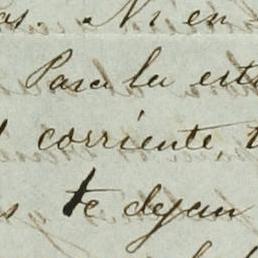 os. Ni en
Para la est
corriente t
s te dejan